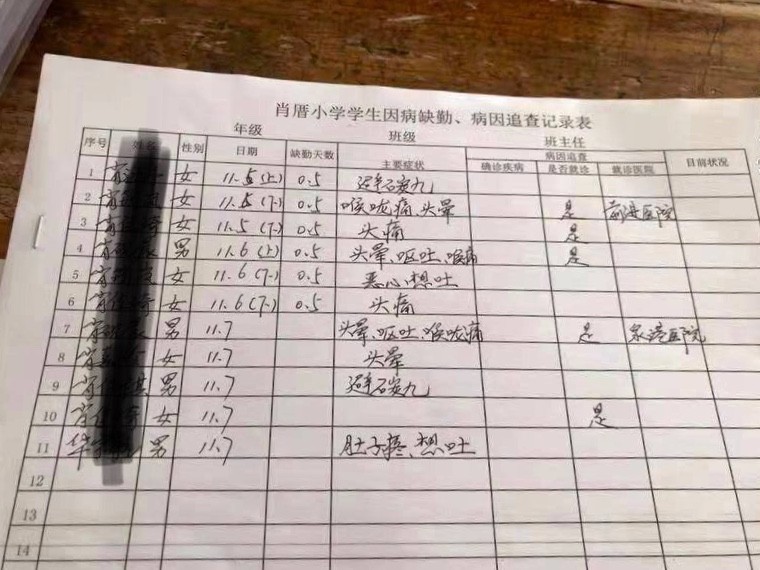 肖厝小学学生因病缺勤、病因追查记录表
年级 班级 班主任
序号 性别 日期 缺勤天数 主要症状 病因追查 目前状况
确诊疾病 是否就诊 就诊医院
1 女 11.5(上) 0.5 避石炭九
2 女 11.5(下) 0.5 喉咙痛、头晕 是 医院
3 女 11.5(下) 0.5 头痛 是
4 男 11.6(上) 0.5 头晕、呕吐、喉痛 是
5 女 11.6(下) 0.5 恶心想吐
6 女 11.6(下) 0.5 头痛
7 男 11.7 头晕、呕吐、喉咙痛 是 泉港医院
8 女 11.7 头晕
9 男 11.7 避石炭九
10 女 11.7 是
11 男 11.7 肚子疼、想吐
12
13
14